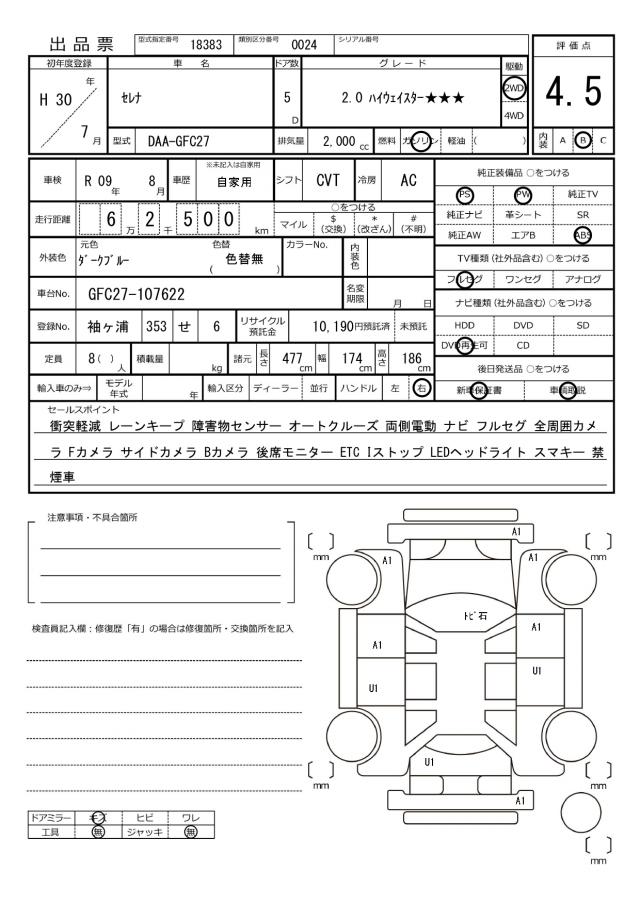 出品票 型式指定番号 18383 類別区分番号 0024 シリアル番号
評価点
初年度登録 車名 ドア数 グレード 駆動
H 30 年 7 月 セレナ 5 D 2.0 ハイウェイスター★★★ 2WD 4WD 4.5
型式 DAA-GFC27 排気量 2,000 cc 燃料 ガソリン 軽油 ( ) 内装 A B C
車検 R 09 年 8 月 車歴 ※未記入は自家用 自家用 シフト CVT 冷房 AC
走行距離 6 万 2 千 5 0 0 km ○をつける
マイル $(交換) *(改ざん) #(不明)
外装色 元色 ダークブルー 色替 ( 色替無 ) カラーNo. 内装色
車台No. GFC27-107622 名変期限 月 日
登録No. 袖ヶ浦 353 せ 6 リサイクル預託金 10,190円預託済 未預託
定員 8 ( ) 人 積載量 kg 諸元 長さ 477 cm 幅 174 cm 高さ 186 cm
輸入車のみ⇒ モデル年式 年 輸入区分 ディーラー 並行 ハンドル 左 右
純正装備品 ○をつける
PS PW 純正TV
純正ナビ 革シート SR
純正AW エアB ABS
TV種類 (社外品含む) ○をつける
フルセグ ワンセグ アナログ
ナビ種類 (社外品含む) ○をつける
HDD DVD SD
DVD再生可 CD
後日発送品 ○をつける
新車保証書 車輌取説
セールスポイント
衝突軽減 レーンキープ 障害物センサー オートクルーズ 両側電動 ナビ フルセグ 全周囲カメ
ラ Fカメラ サイドカメラ Bカメラ 後席モニター ETC Iストップ LEDヘッドライト スマキー 禁
煙車
注意事項・不具合箇所
検査員記入欄：修復歴「有」の場合は修復箇所・交換箇所を記入
A1
mm
mm
A1
A1
トビ石
A1
A1
U1
U1
U1
mm
mm
A1
mm
ドアミラー キズ ヒビ ワレ
工具 無 ジャッキ 無